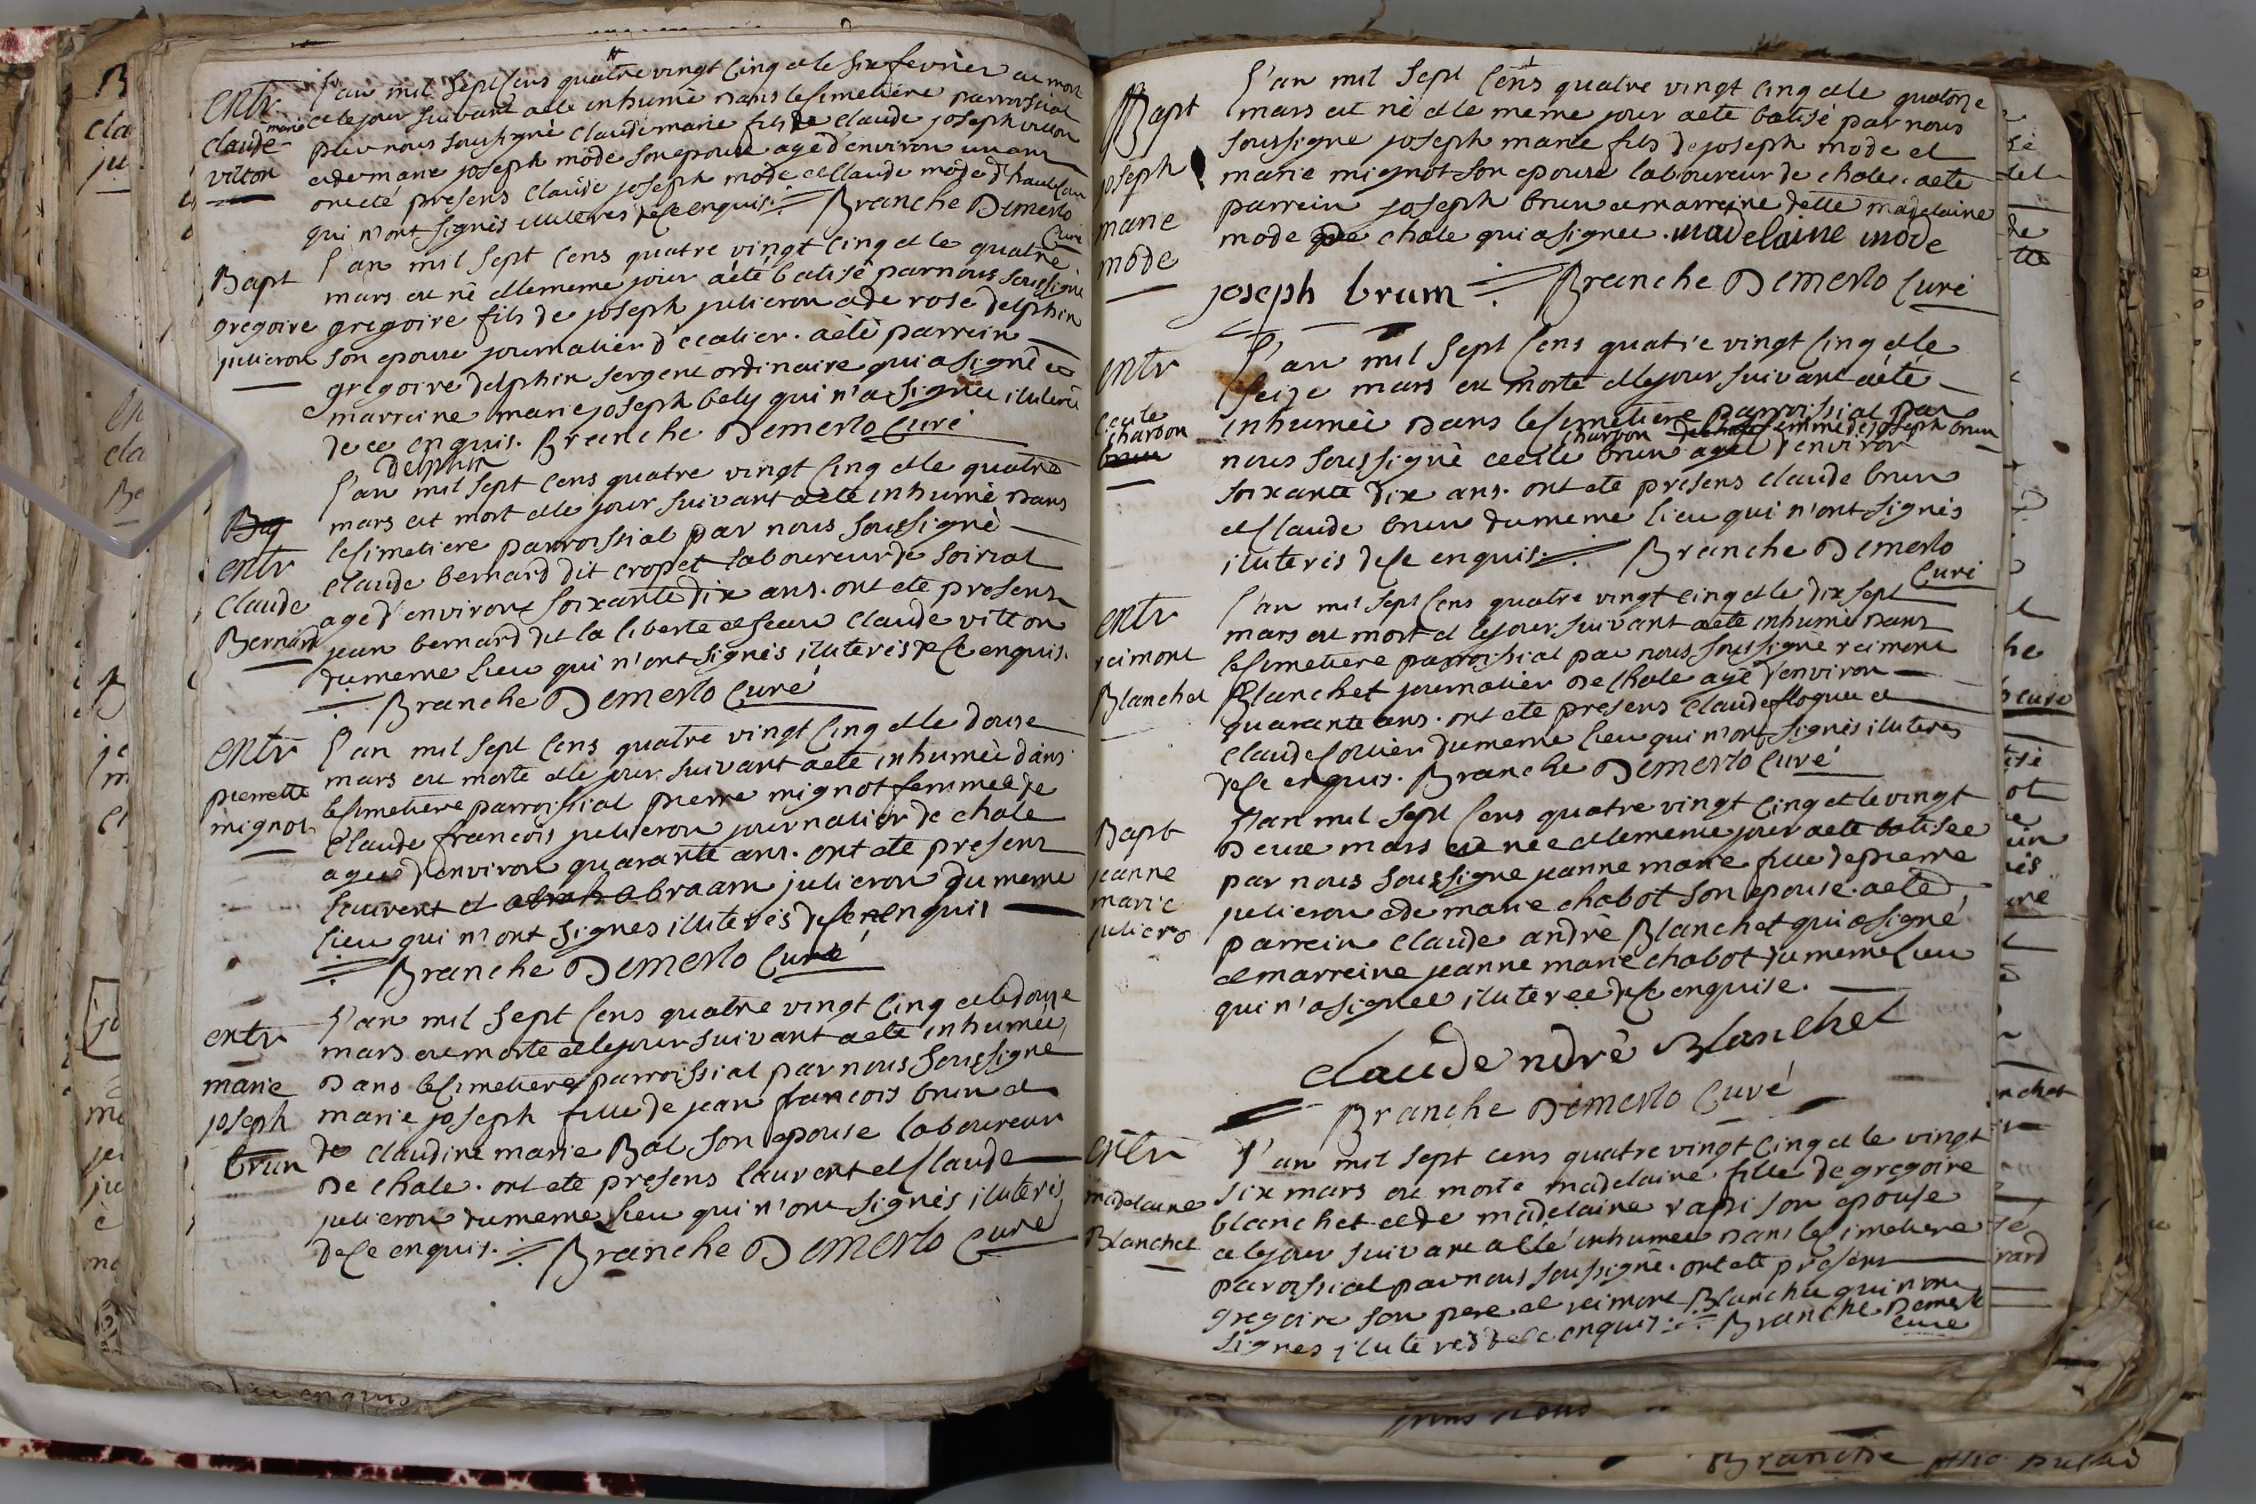 entr
claude marie
vitton
L'an mil sept cens quatre vingt cinq et le six fevrier est mort
et le jour suivant a ete inhumè dans le simetiere parroissial
par nous soussignè claude marie fils de claude joseph vitton
et de marie joseph mode son epouse agè d'environ un an
ont eté presens claude joseph mode et claude mode d'haute
qui n'ont signès illiterès de ce enquis. Branche Demerlo
Curé
Bapt
gregoire
julieron
L'an mil sept cens quatre vingt cinq et le quatre
mars est nè et le meme jour a eté batisé par nous soussignè
gregoire fils de joseph julieron et de rose delphin
son epouse journalier d'ecalier. a èté parrein
gregoire delphin sergent ordinaire qui a signé et
marreine marie joseph bely qui n'a signée iliterée
de ce enquis. Branche Demerlo Curé
delphin
Bap
entr
Claude
Bernard
L'an mil sept cens quatre vingt cinq et le quatre
mars est mort et le jour suivant a ete inhumè dans
le simetiere parroissial par nous soussignè
claude bernard dit cropet laboureur de soirial
agé d'environ soixante dix ans. ont ete presens
jean bernard dit la liberte et jean claude vitton
du meme lieu qui n'ont signés iliterés de ce enquis.
Branche Demerlo Curé
entr
pierrette
mignot
L'an mil sept cens quatre vingt cinq et le douse
mars est morte et le jour suivant a eté inhumée dans
le simetiere parroissial pierre mignot femme de
Claude francois julieron journalier de chale
agée d'environ quarante ans. ont ete presens
laurent et abraham julieron du meme
lieu qui n'ont signes iliterés de ce enquis
Branche Demerlo Curé
entr
marie
joseph
brun
L'an mil sept cens quatre vingt cinq et le douze
mars est morte et le jour suivant a ete inhumée
dans le simetiere parroissial par nous soussigné
marie joseph fille de jean francois brun et
de claudine marie Bal son epouse laboureur
de chale. ont ete presens laurent et claude
julieron du meme lieu qui n'ont signès iliteris
de ce enquis. Branche Demerlo Curé
Bapt
joseph
marie
mode
L'an mil sept cens quatre vingt cinq et le quatorze
mars est nè et le meme jour a ete batisé par nous
soussigne joseph marie fils de joseph mode et
marie mignot son epouse laboureur de chale. a eté
parrein joseph brun et marreine dette madelaine
mode de chale qui a signee. madelaine mode
joseph brum Branche Demerlo Curé
entr
cecile
charbon
brun
L'an mil sept cens quatre vingt cinq et le
seize mars est morte et le jour suivant a été
inhumée dans le simetiere parroissial par
charbon femme de joseph brun
nous soussignè cecile brun agée d'environ
soixante dix ans. ont ete presens claude brun
et claude brun du meme lieu qui n'ont signés
iliteris de ce enquis. Branche Demerlo
Curé
entr
reimont
Blanchet
L'an mil sept cens quatre vingt cinq et le dix sept
mars est mort et le jour suivant a ete inhumè dans
le simetiere parroissial par nous soussignè reimont
Blanchet journalier de chale agé d'environ
quarante ans. ont ete presens claude
claude du meme lieu qui n'ont signés iliteres
de ce enquis. Branche Demerlo Curé
Bapt
jeanne
marie
juliero
L'an mil sept cens quatre vingt cinq et le vingt
deux mars est née et le meme jour a ete batisée
par nous soussigne jeanne marie fille de pierre
julieron et de marie chabot son epouse. a ete
parrein claude andrè Blanchet qui a signé
et marreine jeanne marie chabot du meme lieu
qui n'a signee iliterée de ce enquise.
claude ndrè Blanchet
Branche Demerlo Curé
entr
madelaine
Blanchet
L'an mil sept cens quatre vingt cinq et le vingt
six mars est morte madelaine fille de gregoire
blanchet et de madelaine son epouse
et le jour suivant a èté inhumee dans le simetiere
paroissial par nous soussignè. ont ete presens
gregoire son pere et reimont Blanchet qui n'ont
signes iliterés de ce enquis. Branche Demerlo
curé